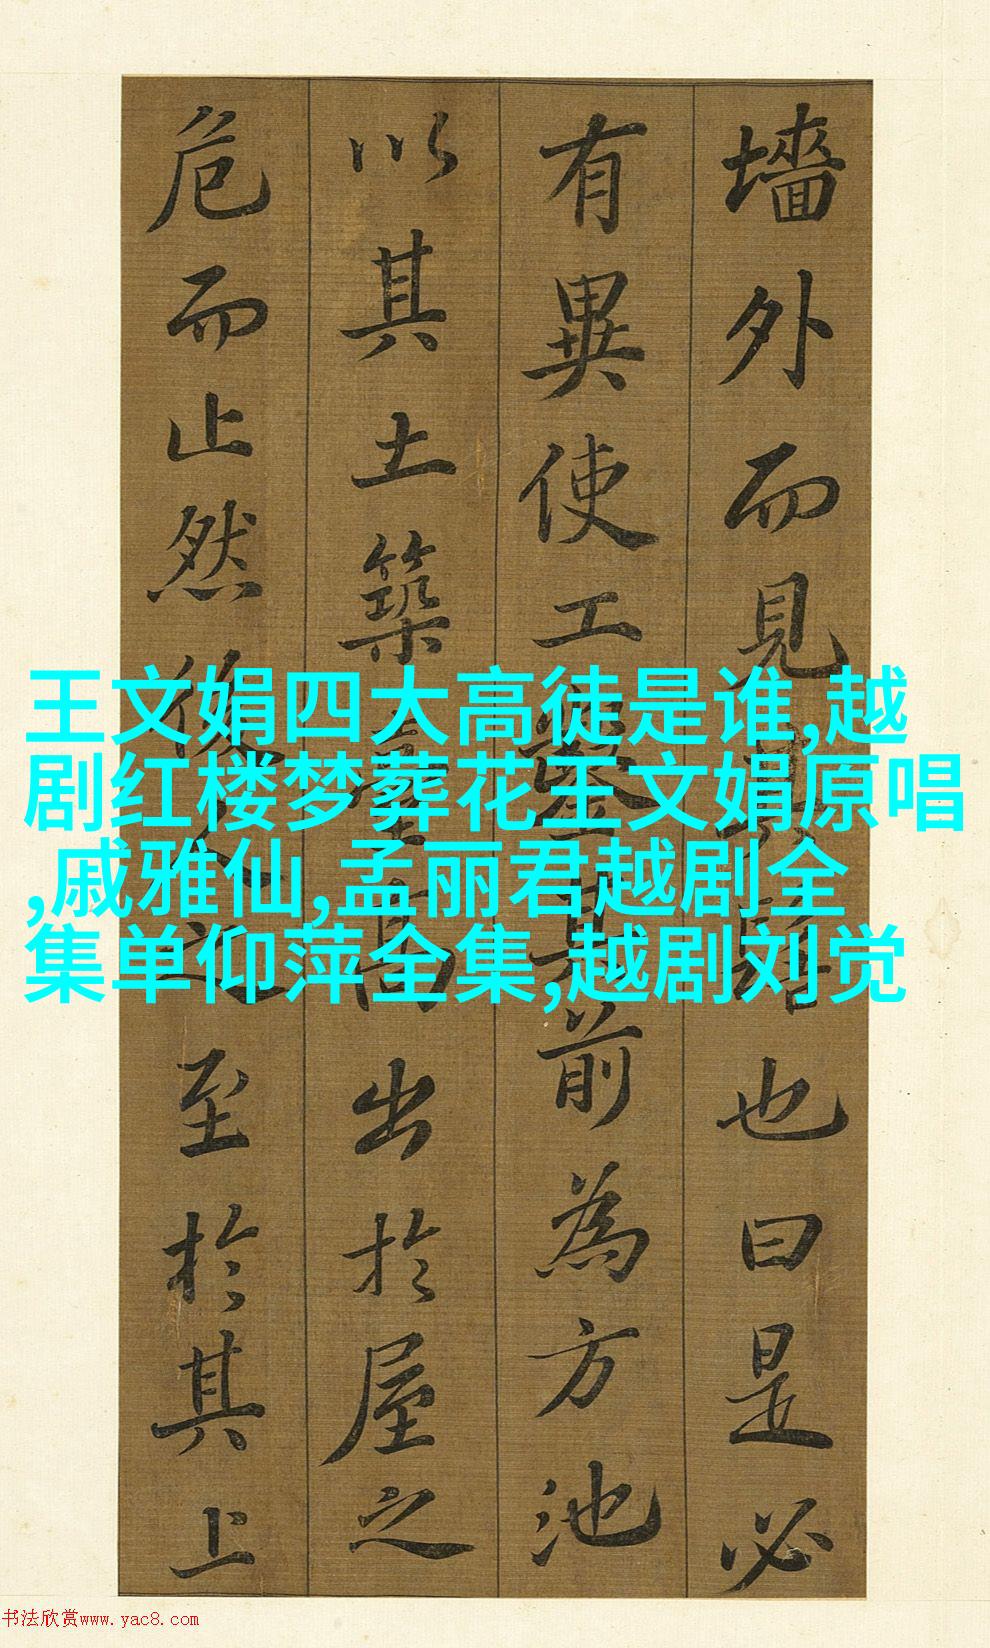 墻外而見其髻也曰是必
有異使工鑿其前為方池
以其土築臺高出於屋之
危而止然後人之至於其上
王文娟四大高徒是谁,越
剧红楼梦葬花王文娟原唱
,戚雅仙,孟丽君越剧全
集单仰萍全集,越剧刘觉
书法欣赏www.yac8.com